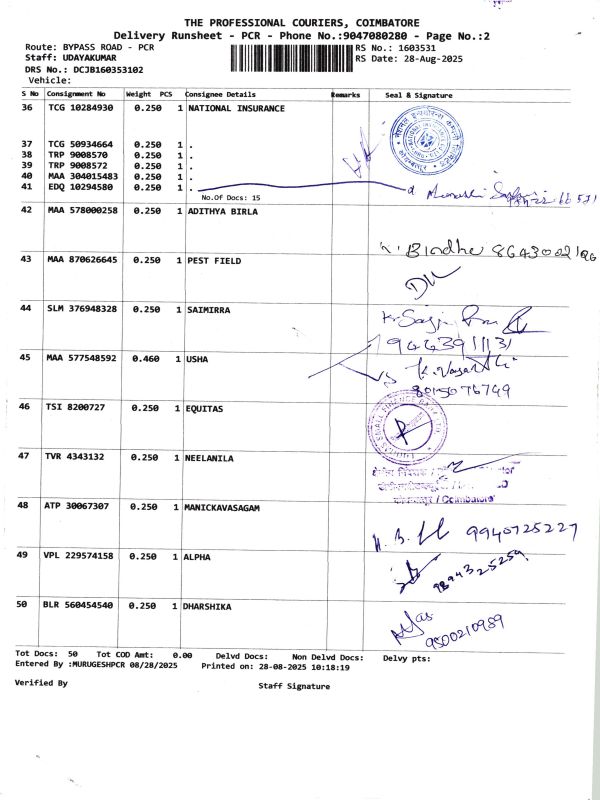 THE PROFESSIONAL COURIERS, COIMBATORE
Delivery Runsheet - PCR - Phone No.:9047080280 - Page No.:2
Route: BYPASS ROAD - PCR
RS No.: 1603531
Staff: UDAYAKUMAR
RS Date: 28-Aug-2025
DRS No.: DCJB160353102
Vehicle:
S No Consignment No Weight PCS Consignee Details Remarks Seal & Signature
36 TCG 10284930 0.250 1 NATIONAL INSURANCE
37 TCG 50934664 0.250 1 .
38 TRP 9008570 0.250 1 .
39 TRP 9008572 0.250 1 .
40 MAA 304015483 0.250 1 .
41 EDQ 10294580 0.250 1 .
No.Of Docs: 15
42 MAA 578000258 0.250 1 ADITHYA BIRLA
43 MAA 870626645 0.250 1 PEST FIELD
44 SLM 376948328 0.250 1 SAIMIRRA
45 MAA 577548592 0.460 1 USHA
8015076749
46 TSI 8200727 0.250 1 EQUITAS
47 TVR 4343132 0.250 1 NEELANILA
/ Coimbatore
48 ATP 30067307 0.250 1 MANICKAVASAGAM
9940725227
49 VPL 229574158 0.250 1 ALPHA
9894325259
50 BLR 560454540 0.250 1 DHARSHIKA
9500210989
Tot Docs: 50 Tot COD Amt: 0.00 Delvd Docs: Non Delvd Docs: Delvy pts:
Entered By :MURUGESHPCR 08/28/2025 Printed on: 28-08-2025 10:18:19
Verified By
Staff Signature